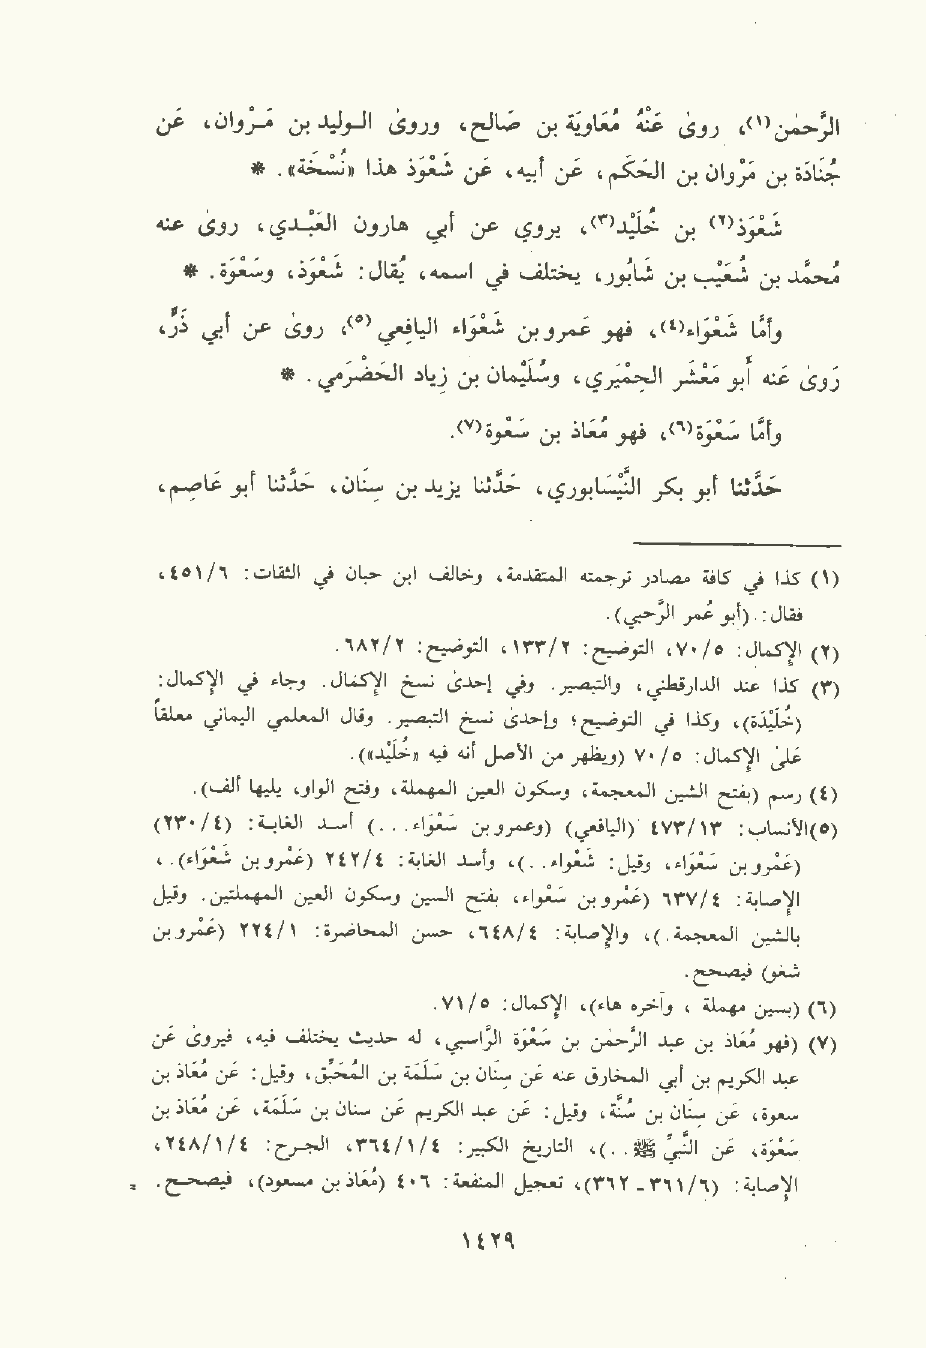 الرَّحمٰن(١)، روىٰ عَنْهُ مُعَاوِيَة بن صَالح، وروىٰ الوليد بن مَرْوان، عَن
جُنَادَة بن مَرْوان بن الحَكَم، عَن أبيه، عَن شَعْوَذ هذا «نُسْخَة». *
شَعْوَذ(٢) بن خُلَيْد(٣)، يروي عن أبي هارون العَبْدي، روىٰ عنه
مُحمَّد بن شُعَيْب بن شَابُور، يختلف في اسمه، يُقال: شَعْوَذ، وسَعْوَة. *
وأمَّا شَعْوَاء(٤)، فهو عَمرو بن شَعْوَاء اليافِعي(٥)، روىٰ عن أبي ذَرّ،
رَوىٰ عَنه أبو مَعْشَر الحِمْيَري، وسُلَيْمان بن زِياد الحَضْرَمي. *
وأمَّا سَعْوَة(٦)، فهو مُعَاذ بن سَعْوة(٧).
حَدَّثنا أبو بكر النَّيْسَابوري، حَدَّثنا يزيد بن سِنَان، حَدَّثنا أبو عَاصِم،
(١) كذا في كافة مصادر ترجمته المتقدمة، وخالف ابن حبان في الثقات: ٤٥١/٦،
فقال: (أبو عُمر الرَّحبي).
(٢) الإكمال: ٧٠/٥، التوضيح: ١٣٣/٢، التوضيح: ٦٨٢/٢.
(٣) كذا عند الدارقطني، والتبصير. وفي إحدىٰ نسخ الإكمال. وجاء في الإكمال:
(خُلَيْدَة)، وكذا في التوضيح؛ وإحدىٰ نسخ التبصير. وقال المعلمي اليماني معلقاً
علىٰ الإكمال: ٧٠/٥ (ويظهر من الأصل أنه فيه «خُلَيْد»).
(٤) رسم (بفتح الشين المعجمة، وسكون العين المهملة، وفتح الواو، يليها ألف).
(٥)الأنساب: ٤٧٣/١٣ (اليافعي) (وعمرو بن سَعْوَاء...) أسد الغابة: (٢٣٠/٤)
(عَمْرو بن سَعْوَاء، وقيل: شَعْواء..)، وأسد الغابة: ٢٤٢/٤ (عَمْرو بن شَعْوَاء).،
الإصابة: ٦٣٧/٤ (عَمْرو بن سَعْواء، بفتح السين وسكون العين المهملتين. وقيل
بالشين المعجمة.)، والإصابة: ٦٤٨/٤، حسن المحاضرة: ٢٢٤/١ (عَمْرو بن
شغو) فيصحح.
(٦) (بسين مهملة، وآخره هاء)، الإكمال: ٧١/٥.
(٧) (فهو مُعَاذ بن عبد الرَّحمٰن بن سَعْوَة الرَّاسبي، له حديث يختلف فيه، فيروىٰ عَن
عبد الكريم بن أبي المخارق عنه عَن سِنَان بن سَلَمَة بن المُحَبِّق، وقيل: عَن مُعَاذ بن
سعوة، عَن سِنَان بن سُنَّة، وقيل: عَن عبد الكريم عَن سنان بن سَلَمَة، عَن مُعَاذ بن
سَعْوَة، عَن النَّبيِّ ﷺ..)، التاريخ الكبير: ٣٦٤/١/٤، الجرح: ٢٤٨/١/٤،
الإصابة: (٣٦١/٦ - ٣٦٢)، تعجيل المنفعة: ٤٠٦ (مُعَاذ بن مسعود)، فيصحح.
١٤٢٩